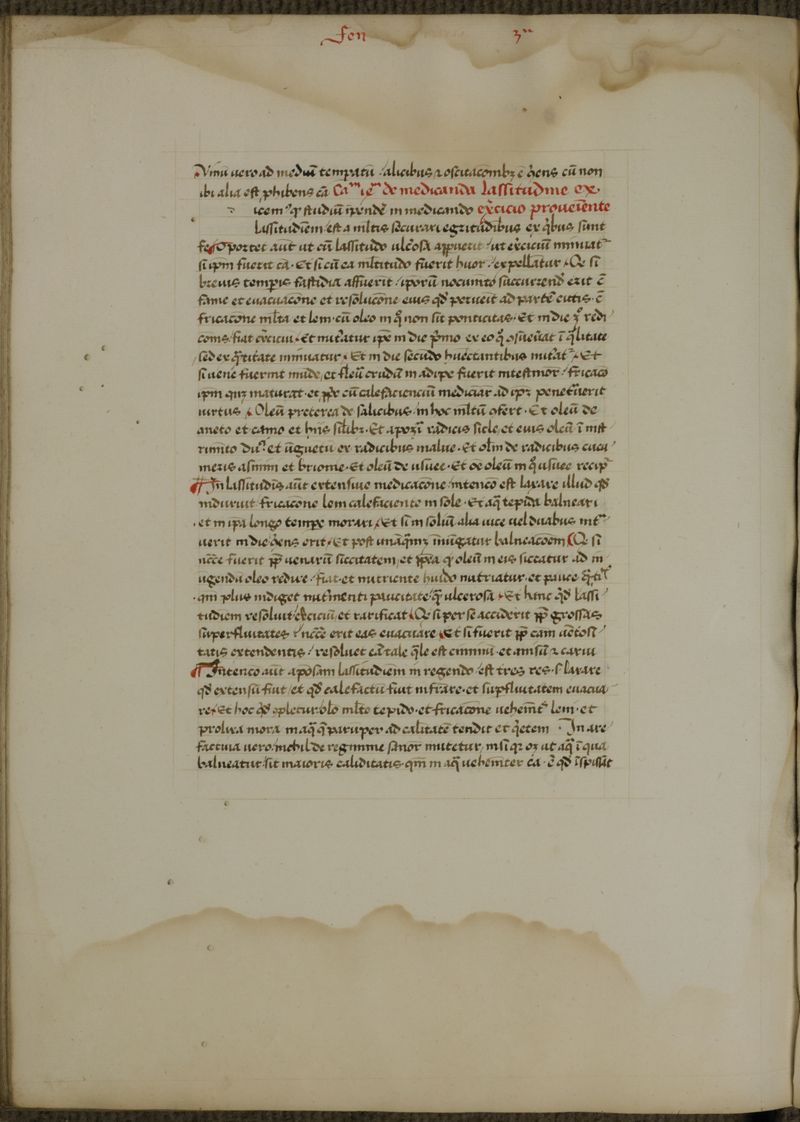 Fen 3ᵃ
Vinū uero ad mediū tempatū / alicibus ⁊ oscitacōnibꝫ ē q̄ens cū non
ibi alia est ꝓhibens cā Caᵐ ieᵐ de medicanda lassitudine ex
studiū in medicando exc̄icio proueiente
lassitudiēm est a mltis sēcurari egritudibus ex q̄bus sunt
feƺ Oportet aūt ut cū lassitudo ulcēosa appuerit / ut exciciū minuat
si ipm fuerit cā · Et si cū ea mltitudo fuerit huor / expellatur · Et si
breuis tempis fastidia affuerit / iporū nocumto succurrend erit ē
fame et euacuacōne et resolucōne eius qd peruēit ad partē cutis · ē
fricacōne mlta et lem · cū oleo in q̄ non sit ponticitas · Et in die redi
coms / fiat exciciū · Et mutatur ipē in die p̄mo ex eo q̄ ī q̄litate
sed ex q̄ntitate minuatur · Et in die secūdo huectantibus mutat · Et
si uene fuerint mūde, et fleū crudū in adipe fuerit intestinor / fricaco
ipm quƺ maturat · et ꝓpr cū calefaciencium mediciār ad ipƺ penetūerit
uirtus · Oleū preterea de salicibus · in hoc mltū ofert · Et oleū de
aneto et camo et hiis silibƺ · Et apoƺī radicis sicle, et eius oleū ī mist
et ūguetū ex radicibus malue · Et olm de radicibus cucu
meris asinini et brionie · Et oleū de usnee · Et oe oleū in q̄ usnee recip
In lassitudīs aūt extensiue medicacōne / intenco est laxare illud qd
induruit fricacōne lem calefaciente in sole · Et aq̄ tepida balneari
· et in ipa longo tempe morari · Et si in soliū alia uice uel duabus int
uerit in die q̄ens erit · Et post unāqmƺ inūgatur balneacoēm Et si
nc̄ce fuerit ꝓp uenarū siccitatem, et ipēa q oleū in eis siccatur ad in
ugendū oleo redire / fiat · et nutriente huido nutriatur · et pauce
· qm plus indiget nut'menti paucitate / q̄ ulcerosa · Et hanc qd lassi
tudiem resoluit exciciū et rarificat · Et si per se acciderit ꝓp grossas
superfluitates / nc̄ce erit eas euacuare · Et si fuerit ꝓp cam uētosi
tatis extendentis / resoluet cā tale q̄le est ciminū et anisū ⁊ carui
Intenco aūt aposam lassitudiem in regendo / est tres res · s laxare
qd extensū fiut / et qd calefactū fiut infrāre · et supfluitatem euacua
re · Et hoc qd opletur · olo mlto tepido · et fricacōne uehemt lem · et
prolixa mora in aq̄ q̄ parūper ad calitatē tendit et q̄etem · In are
factiua uero · nichil de regimine sanor mutetur, nisi qƺ oƺ ut aq̄ ī qua
balneatur · sit maioris caliditatis · qm in aq̄ uehemter cā · ē qd īspisāt